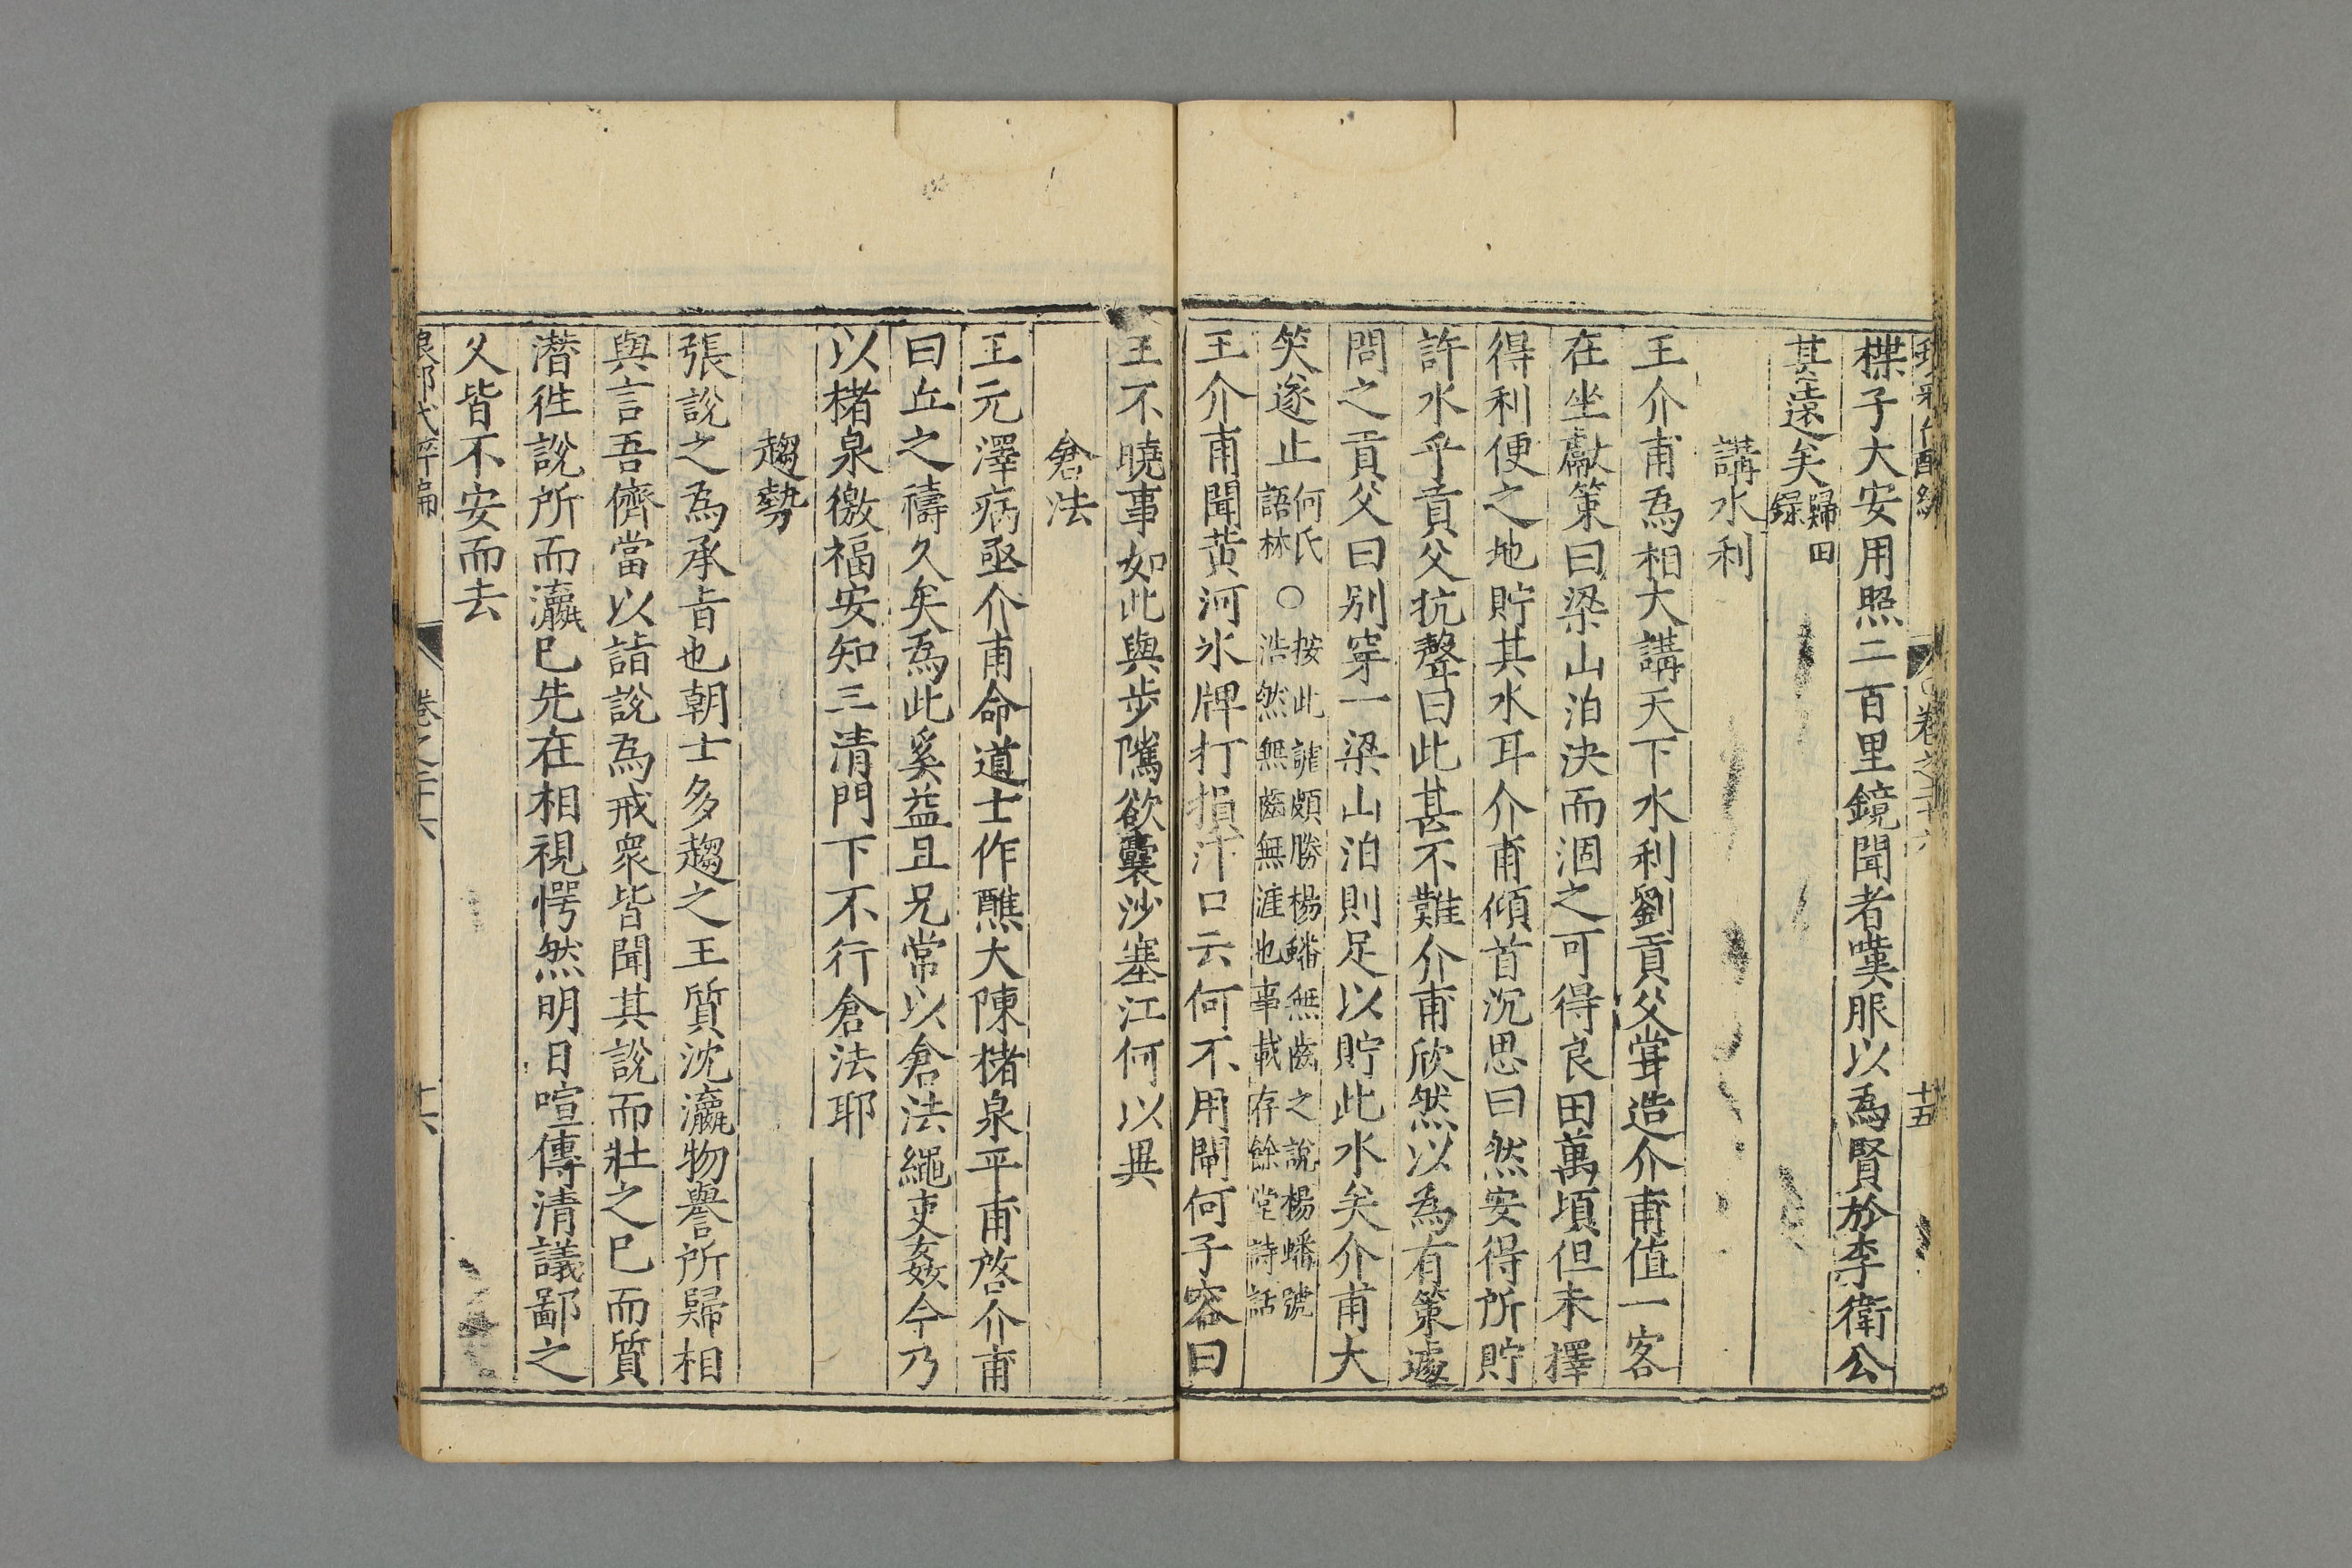 卷之三十六
十五
楪子大安用照二百里鏡聞者嘆服以為賢於李衛公
其遠矣歸田錄
講水利
王介甫為相大講天下水利劉貢父嘗造介甫值一客
在坐獻策曰梁山泊決而涸之可得良田萬頃但未擇
得利便之地貯其水耳介甫傾首沉思曰然安得所貯
許水乎貢父抗聲曰此甚不難介甫欣然以為有策遽
問之貢父曰別穿一梁山泊則足以貯此水矣介甫大
笑遂止何氏語林○按此謔頗勝楊蟠無齒之說楊蟠號浩然無齒無涯也事載存餘堂詩話
王介甫聞黃河氷牌打損汴口云何不用閘何子容曰
王不曉事如此與步隲欲囊沙塞江何以異
倉法
王元澤病亟介甫命道士作醮大陳楮泉平甫啓介甫
曰丘之禱久矣為此奚益且兄常以倉法繩吏姦今乃
以楮泉徼福安知三清門下不行倉法耶
趨勢
張說之為承旨也朝士多趨之王質沈瀛物譽所歸相
與言吾儕當以詣說為戒衆皆聞其說而壯之已而質
潛徃說所而瀛已先在相視愕然明日喧傳清議鄙之
乆皆不安而去
琅邪代醉編
卷之三十六
十六